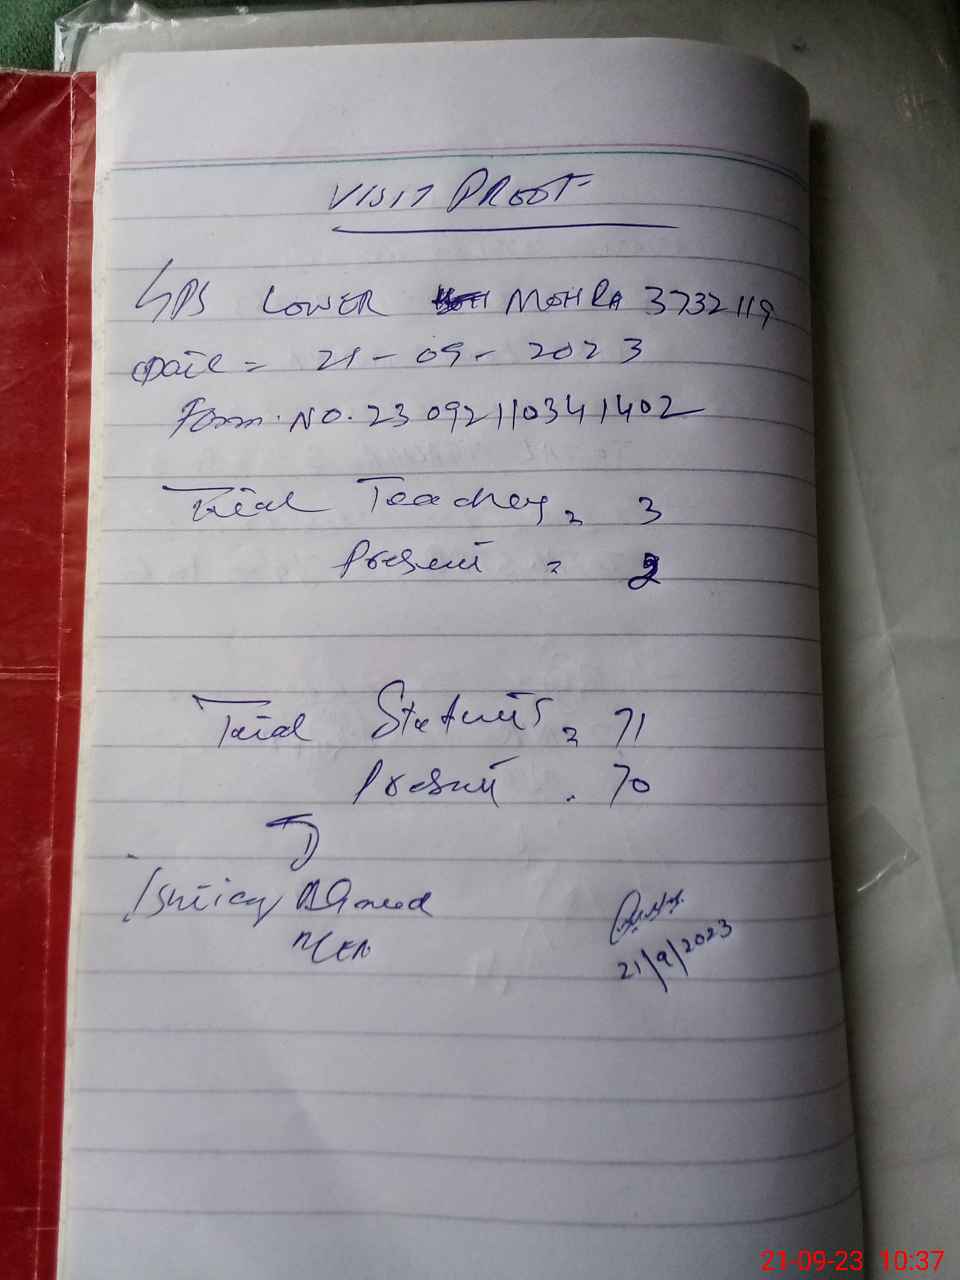 VISIT PROOF
GPS LOWER MOHRA 3732119
Date = 21-09-2023
Form NO. 23092110341402
Total Teachers = 3
Present = 2
Total Students = 71
Present = 70
Ishtiaq Ahmed
21/9/2023
21-09-23 10:37